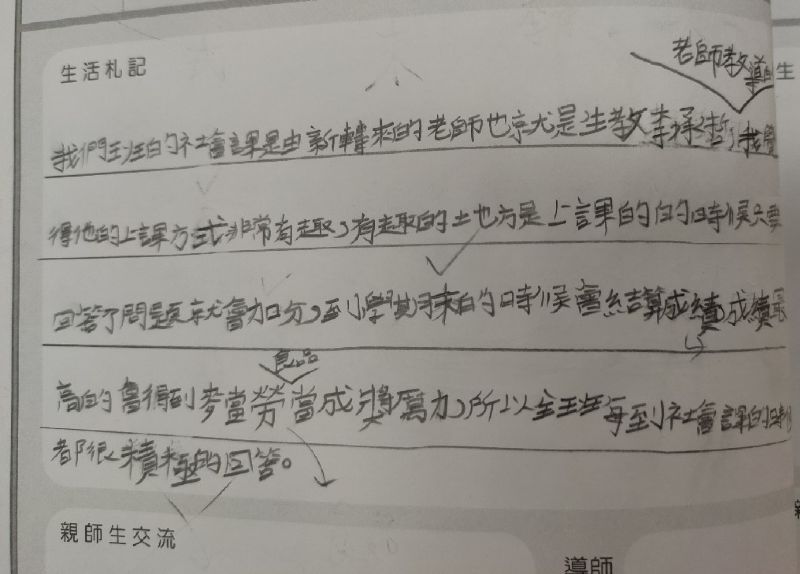 生活札記
老師教導
我們班的社會課是由新轉來的老師也就是生教李承 我覺
得他的上課方式非常有趣,有趣的地方是上課的的時候只要
回答了問題就會加分,到學期末的時候會結算成績成績最
食品
高的會得到麥當勞當成獎勵,所以全班每到社會課的時候
都很積極的回答。
親師生交流
導師
生